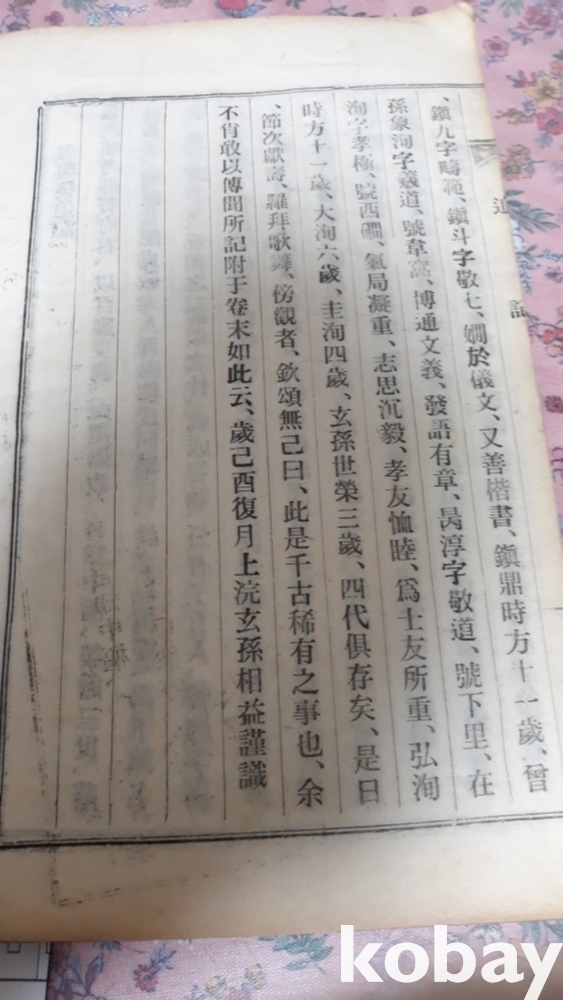 追記
、鎭九字疇範、鎭斗字敬七、嫺於儀文、又善楷書、鎭鼎時方十一歲、曾
孫象洵字羲道、號韋窩、博通文義、發語有章、昺淳字敬道、號下里、在
洵字孝極、號西磵、氣局凝重、志思沉毅、孝友恤睦、爲士友所重、弘洵
時方十一歲、大洵六歲、圭洵四歲、玄孫世榮三歲、四代俱存矣、是日
、節次獻壽、羅拜歌舞、傍觀者、欽頌無已曰、此是千古稀有之事也、余
不肖敢以傳聞所記附于卷末如此云、歲己酉復月上浣玄孫相益謹識
kobay